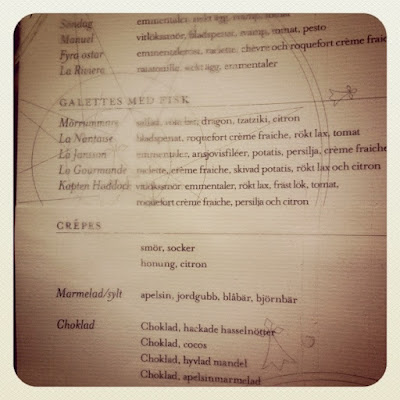 Söndag emmentaler, stekt ägg,
Manuel vitlökssmör, bladspenat, tomat, pesto
Fyra ostar emmentalerost, raclette, chèvre och roquefort crème fraiche
La Riviere ratatouille, stekt ägg, emmentaler
GALETTES MED FISK
Mörrummare dragon, tzatziki, citron
La Nantaise bladspenat, roquefort crème fraiche, rökt lax, tomat
La Jansson emmentaler, ansjovisfiléer, potatis, persilja, crème fraiche
La Gourmande raclette, crème fraiche, skivad potatis, rökt lax och citron
Kapten Haddock vitlökssmör emmentaler, rökt lax, fräst lök, tomat,
roquefort crème fraiche, persilja och citron
CRÊPES
smör, socker
honung, citron
Marmelad/sylt apelsin, jordgubb, blåbär, björnbär
Choklad Choklad, hackade hasselnötter
Choklad, cocos
Choklad, hyvlad mandel
Choklad, apelsinmarmelad